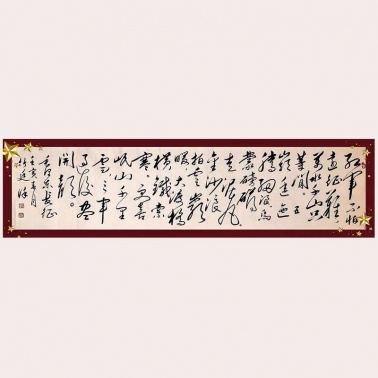 红军不怕
远征难
万水千山只
等闲 五
岭逶迤
腾细浪乌
蒙磅礴
走泥丸
金沙浪
拍云崖
暖大渡桥
横铁索
寒。更喜
岷山千里
雪三军
过后尽
开颜。
毛泽东长征